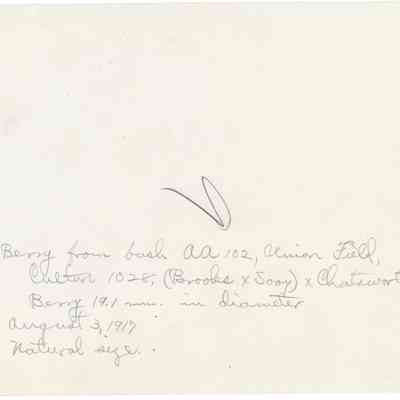 Berry from bush AA 102, Union Field,
Culture 1028, (Brooks x Sooy) x Chatswort
Berry 19.1 mm. in diameter
August 3, 1917
Natural size.